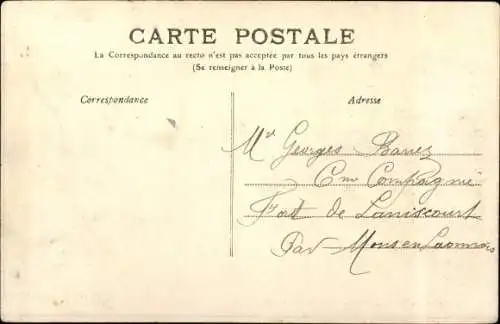 CARTE POSTALE
La Correspondance au recto n'est pas acceptée par tous les pays étrangers
(Se renseigner à la Poste)
Correspondance
Adresse
Mr Georges
Compagnie
Fort de Laniscourt
Par Mons en Laonnois